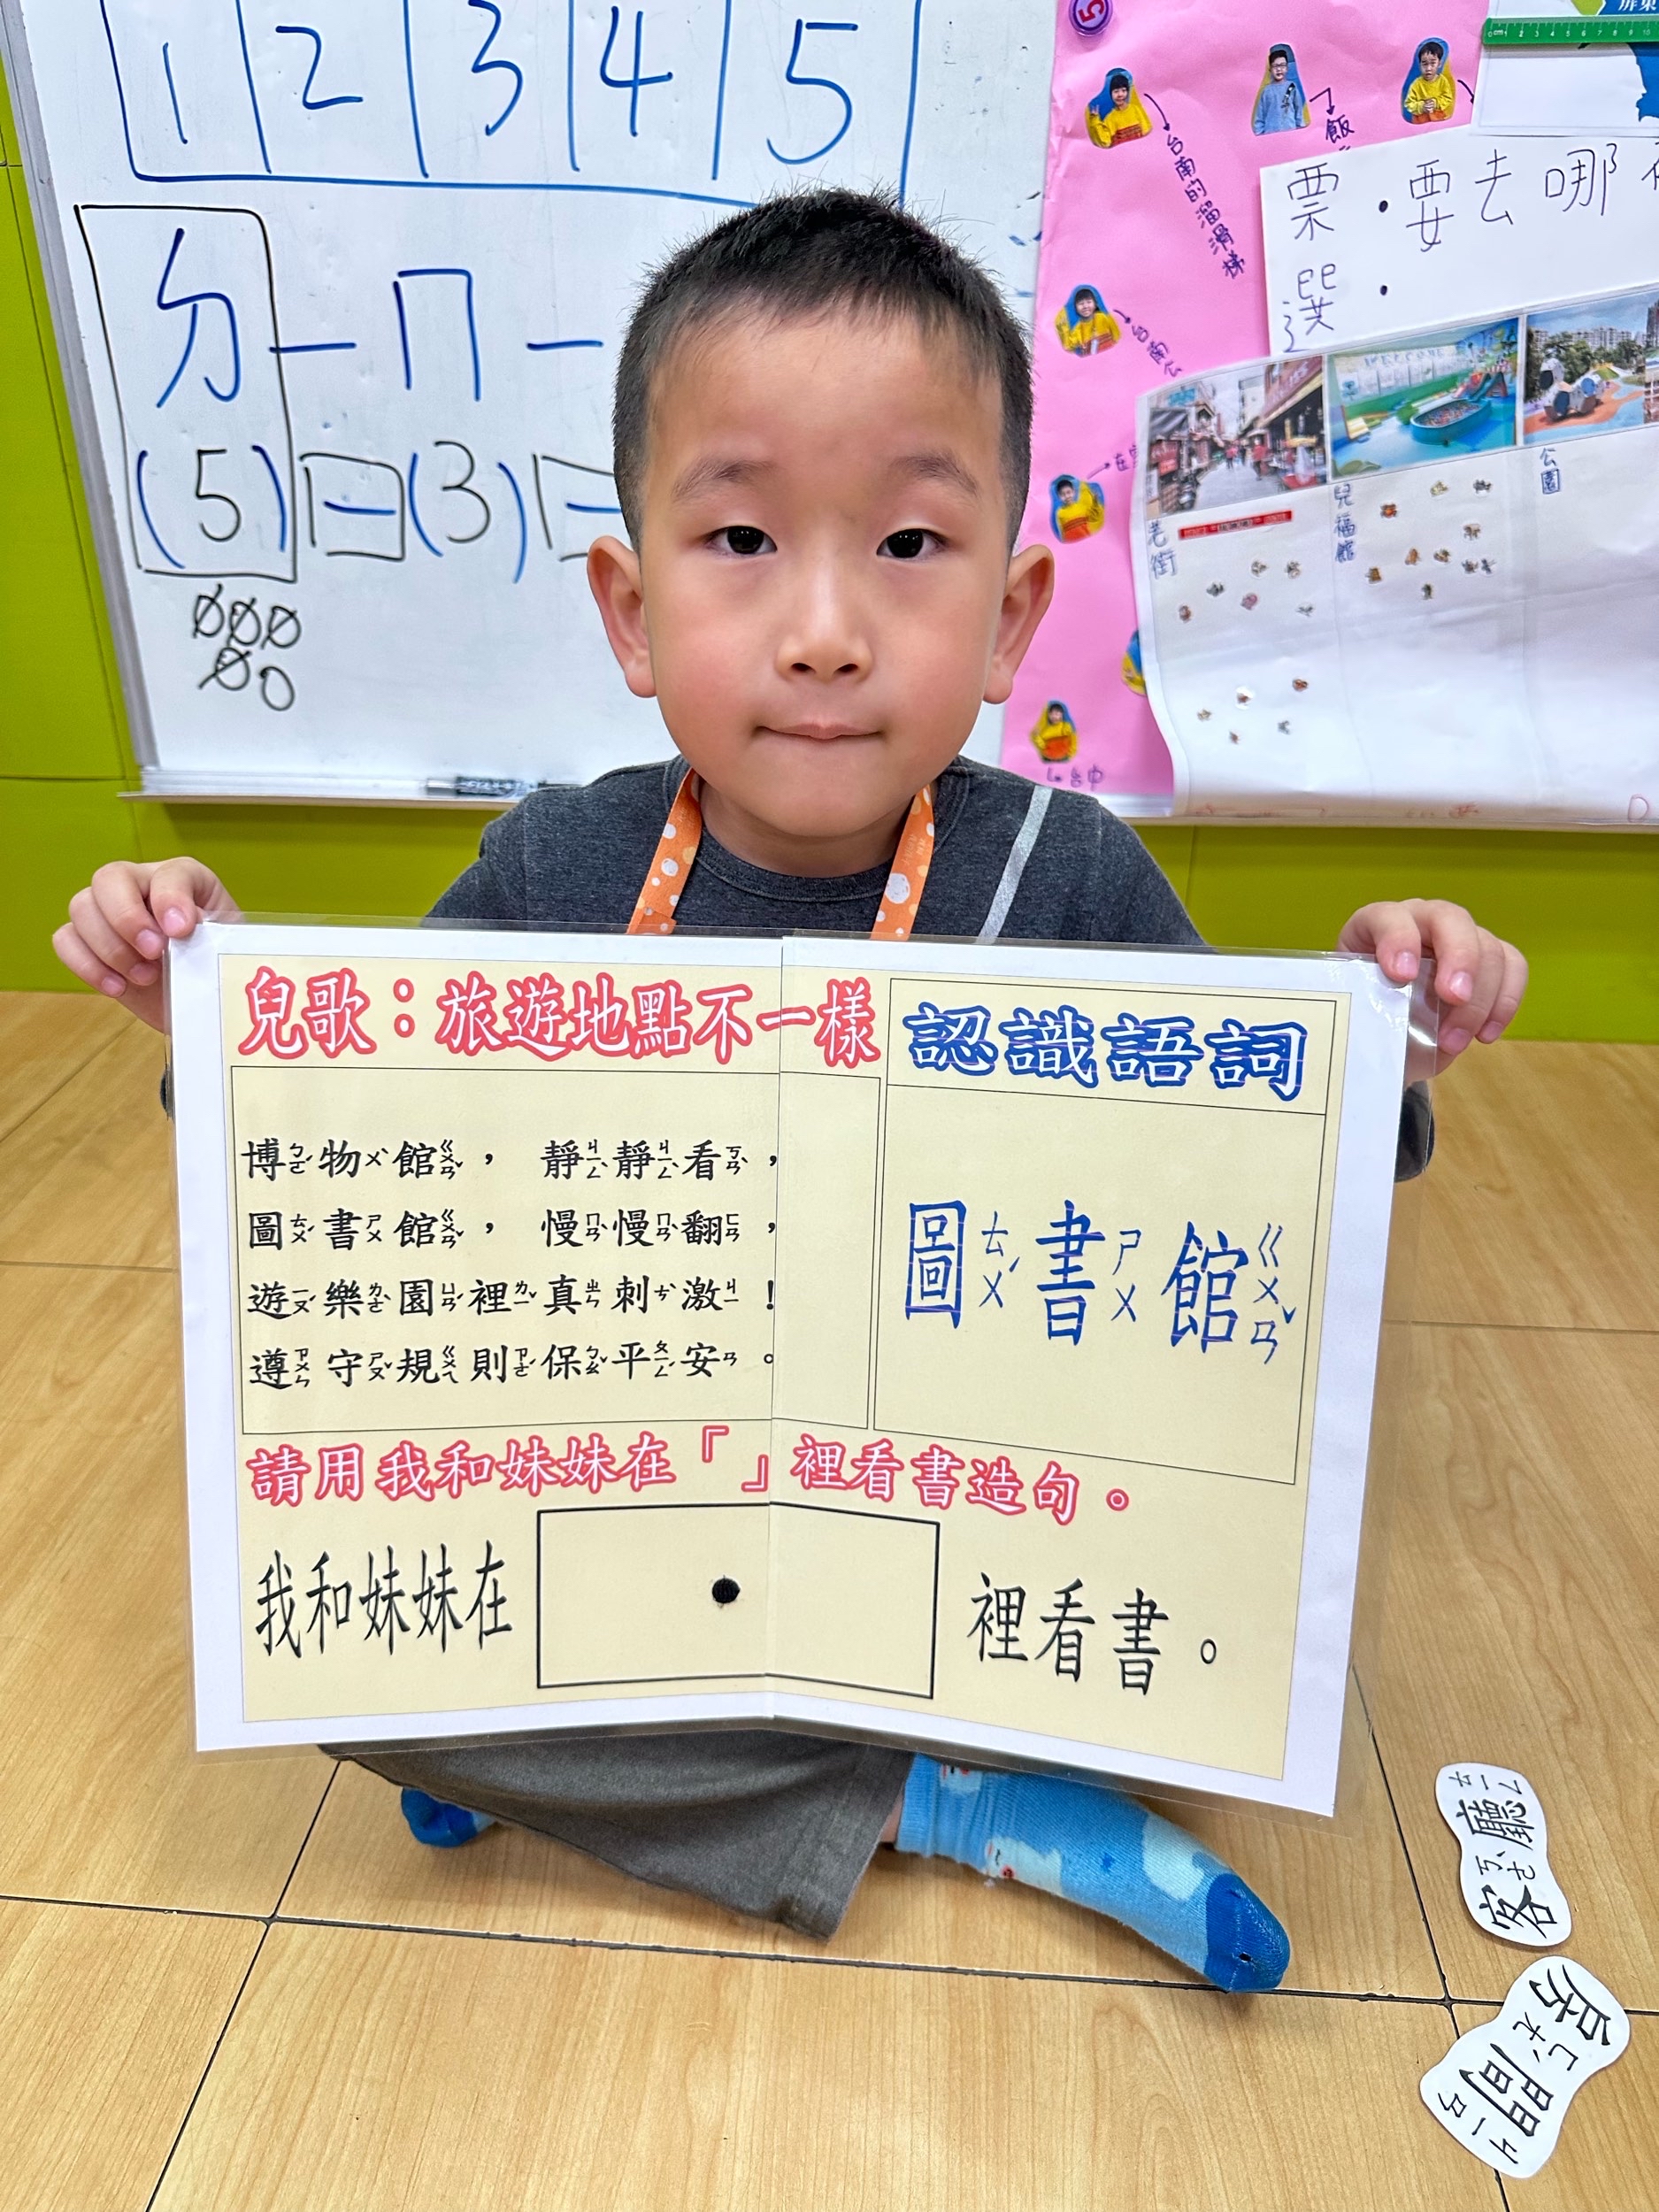 1 2 3 4 5
ㄉ一ㄇ一
(5)一(3)
5
台南的溜滑梯
飯
票・要去哪
選・
老街
兒福館
公園
台中
兒歌：旅遊地點不一樣
認識語詞
博ㄅㄛˊ物ㄨˋ館ㄍㄨㄢˇ， 靜ㄐㄧㄥˋ靜ㄐㄧㄥˋ看ㄎㄢˋ，
圖ㄊㄨˊ書ㄕㄨ館ㄍㄨㄢˇ， 慢ㄇㄢˋ慢ㄇㄢˋ翻ㄈㄢ，
遊ㄧㄡˊ樂ㄌㄜˋ園ㄩㄢˊ裡ㄌㄧˇ真ㄓㄣ刺ㄘˋ激ㄐㄧ！
遵ㄗㄨㄣ守ㄕㄡˇ規ㄍㄨㄟ則ㄗㄜˊ保ㄅㄠˇ平ㄆㄧㄥˊ安ㄢ。
圖ㄊㄨˊ書ㄕㄨ館ㄍㄨㄢˇ
請用我和妹妹在「」裡看書造句。
我和妹妹在 裡看書。
客ㄎㄜˋ廳ㄊㄧㄥ
房ㄈㄤˊ間ㄐㄧㄢ